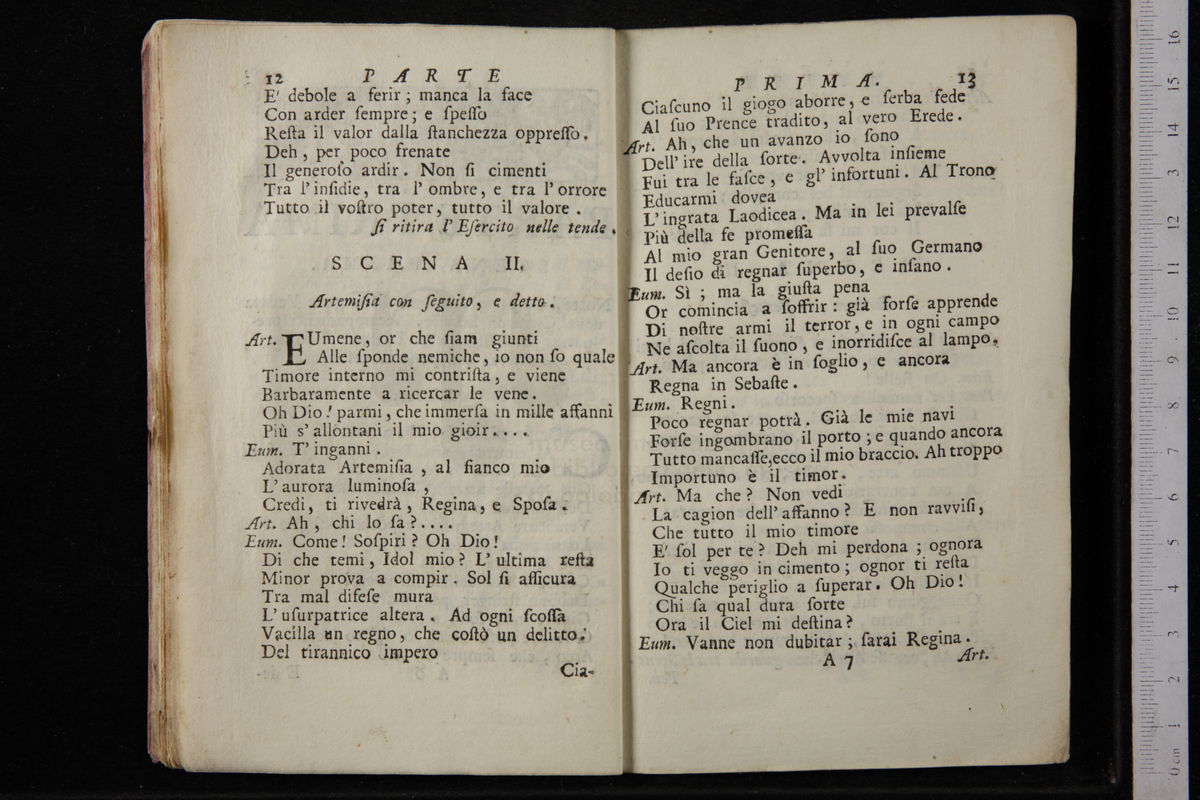 12 PARTE
E' debole a ferir; manca la face
Con arder ſempre; e ſpeſſo
Reſta il valor dalla ſtanchezza oppreſſo.
Deh, per poco frenate
Il generoſo ardir. Non ſi cimenti
Tra l'inſidie, tra l'ombre, e tra l'orrore
Tutto il voſtro poter, tutto il valore.
ſi ritira l'Eſercito nelle tende.
SCENA II.
Artemiſia con ſeguito, e detto.
Art. EUmene, or che ſiam giunti
Alle ſponde nemiche, io non ſo quale
Timore interno mi contriſta, e viene
Barbaramente a ricercar le vene.
Oh Dio! parmi, che immerſa in mille affanni
Più s'allontani il mio gioir....
Eum. T'inganni.
Adorata Artemiſia, al fianco mio
L'aurora luminoſa,
Credi, ti rivedrà, Regina, e Spoſa.
Art. Ah, chi lo ſa?....
Eum. Come! Soſpiri? Oh Dio!
Di che temi, Idol mio? L'ultima reſta
Minor prova a compir. Sol ſi aſſicura
Tra mal difeſe mura
L'uſurpatrice altera. Ad ogni ſcoſſa
Vacilla un regno, che coſtò un delitto.
Del tirannico impero
Cia-
PRIMA. 13
Ciaſcuno il giogo aborre, e ſerba fede
Al ſuo Prence tradito, al vero Erede.
Art. Ah, che un avanzo io ſono
Dell'ire della ſorte. Avvolta inſieme
Fui tra le faſce, e gl'infortuni. Al Trono
Educarmi dovea
L'ingrata Laodicea. Ma in lei prevalſe
Più della fe promeſſa
Al mio gran Genitore, al ſuo Germano
Il deſio di regnar ſuperbo, e inſano.
Eum. Sì; ma la giuſta pena
Or comincia a ſoffrir: già forſe apprende
Di noſtre armi il terror, e in ogni campo
Ne aſcolta il ſuono, e inorridiſce al lampo.
Art. Ma ancora è in ſoglio, e ancora
Regna in Sebaſte.
Eum. Regni.
Poco regnar potrà. Già le mie navi
Forſe ingombrano il porto; e quando ancora
Tutto mancaſſe, ecco il mio braccio. Ah troppo
Importuno è il timor.
Art. Ma che? Non vedi
La cagion dell'affanno? E non ravviſi,
Che tutto il mio timore
E' ſol per te? Deh mi perdona; ognora
Io ti veggo in cimento; ognor ti reſta
Qualche periglio a ſuperar. Oh Dio!
Chi ſa qual dura ſorte
Ora il Ciel mi deſtina?
Eum. Vanne non dubitar; ſarai Regina.
A 7 Art.